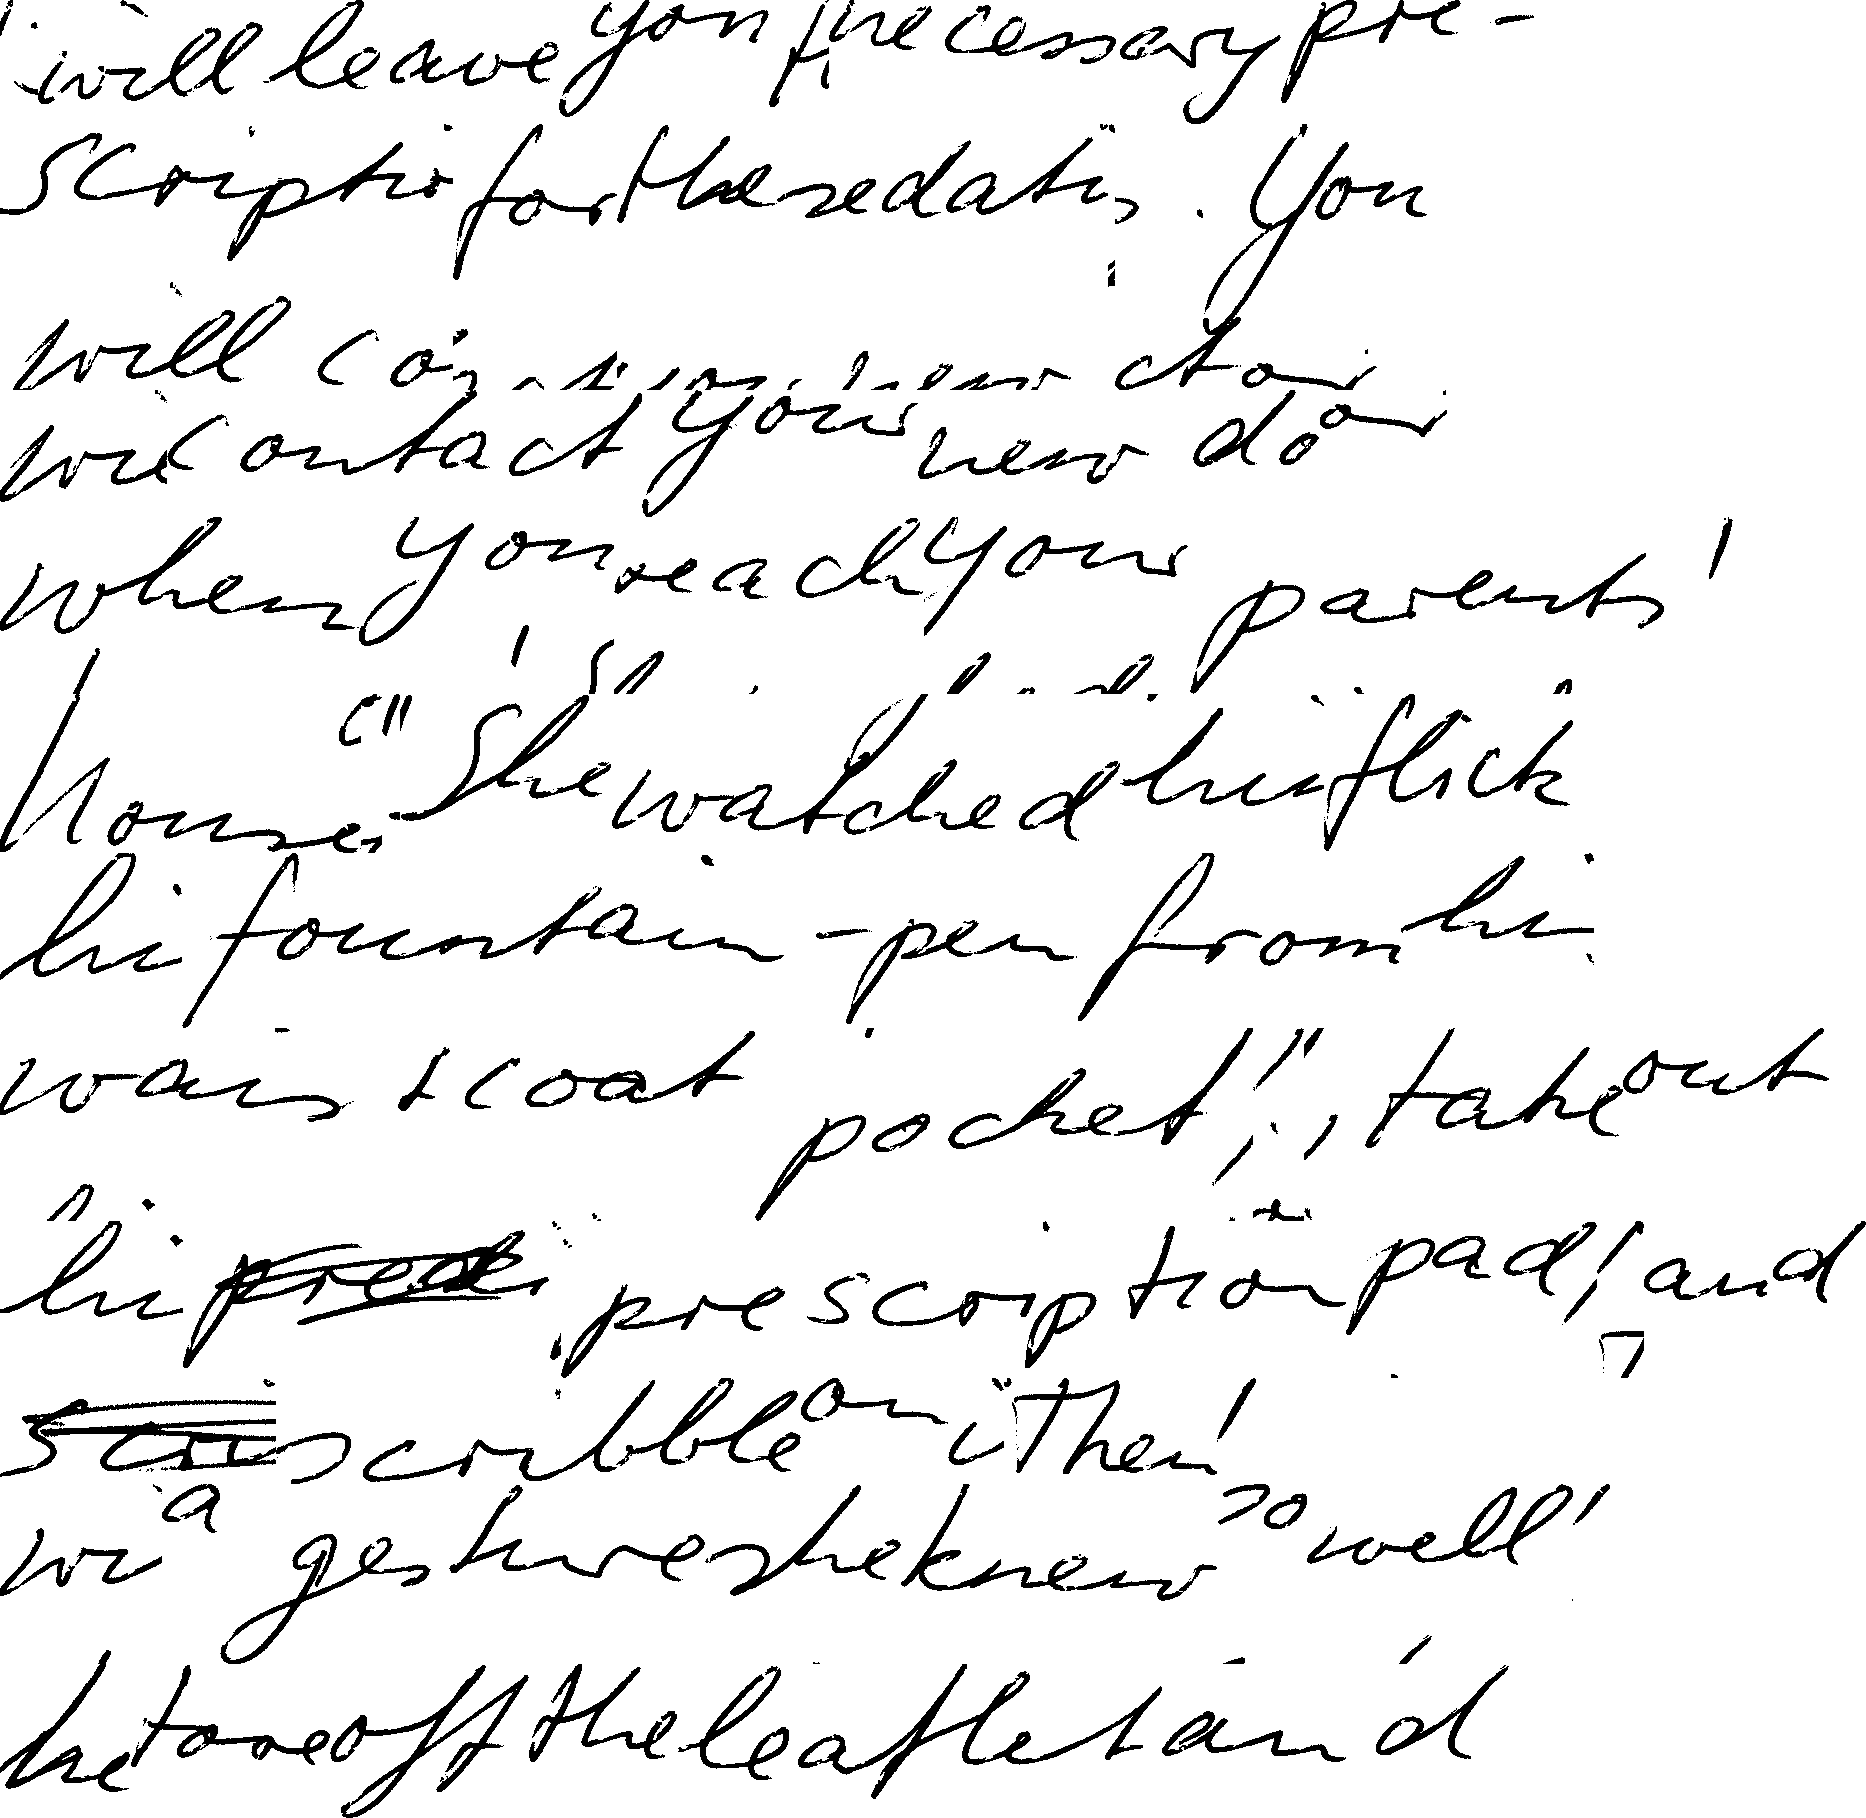 will leave you the necessary pre-
scriptio for the sedatis. You
will co
wi contact your new do
when you reach your parents'
house." She watched his flick
his fountain-pen from his
waistcoat pocket, take out
his prescription pad, and
scribble on it. Then,
wi a gesture she knew so well,
he tore off the leaflet and